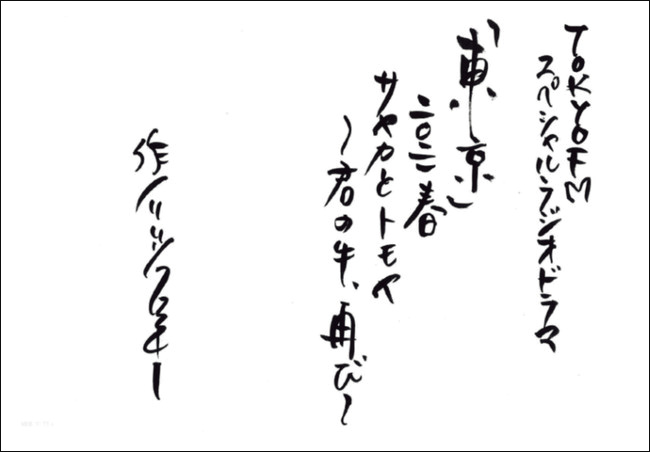 TOKYOFM
スペシャルラジオドラマ
「東京」
二〇一一春
サヤカとトモヤ
〜君の牛、再び〜
作/リリーフランキー